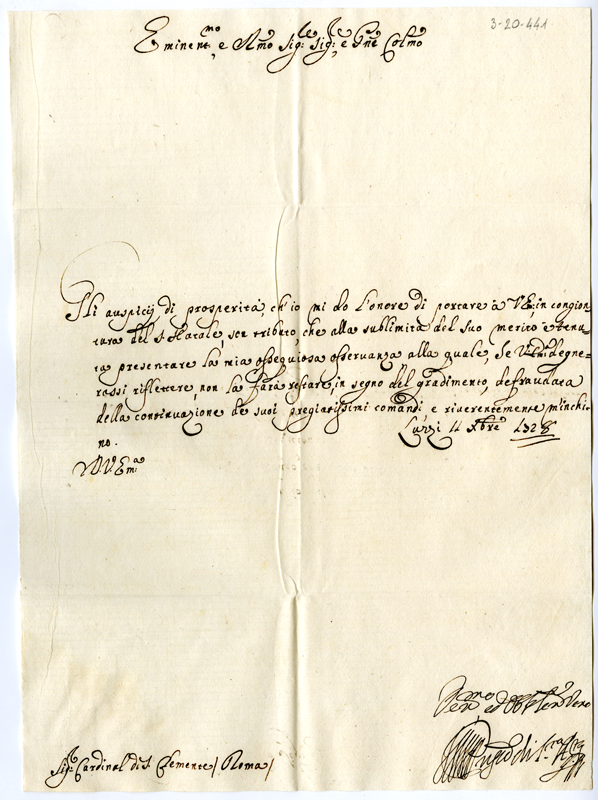 3-20-441
Eminent.mo e R.mo Sig.re Sig.re e P.ne Col.mo
Gli auspicij di prosperità, ch'io mi do l'onore di portare à V.E. in congion-
tura del S. Natale, son tributo, che alla sublimità del suo merito è tenu-
ta presentare la mia ossequiosa osservanza alla quale, se V. Em. degne-
rassi riflettere, non la farà restare, in segno del gradimento, defraudata
della continuazione de suoi pregiatissimi comandi, e riverentemente m'inchi-
no.
Luzzi 4 Xbre 1728
D. V. Em.a
Ser.re
Sig.r Cardinal di S. Clemente / Roma /